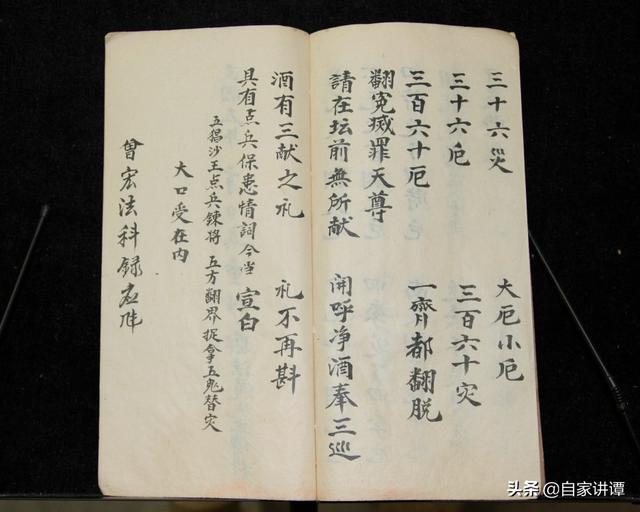 三十六災 大厄小厄
三十六厄 三百六十灾
三百六十厄 一齊都翻脱
翻冤滅罪天尊
請在坛前無所献 開呼净酒奉三巡
酒有三献之礼 礼不再斟
具有点兵保患情詞今当 宣白
五猖沙王点兵鍊将 五方翻界捉拿五鬼替灾
大口受在内
曾宏法科録
头条 @自家讲谭